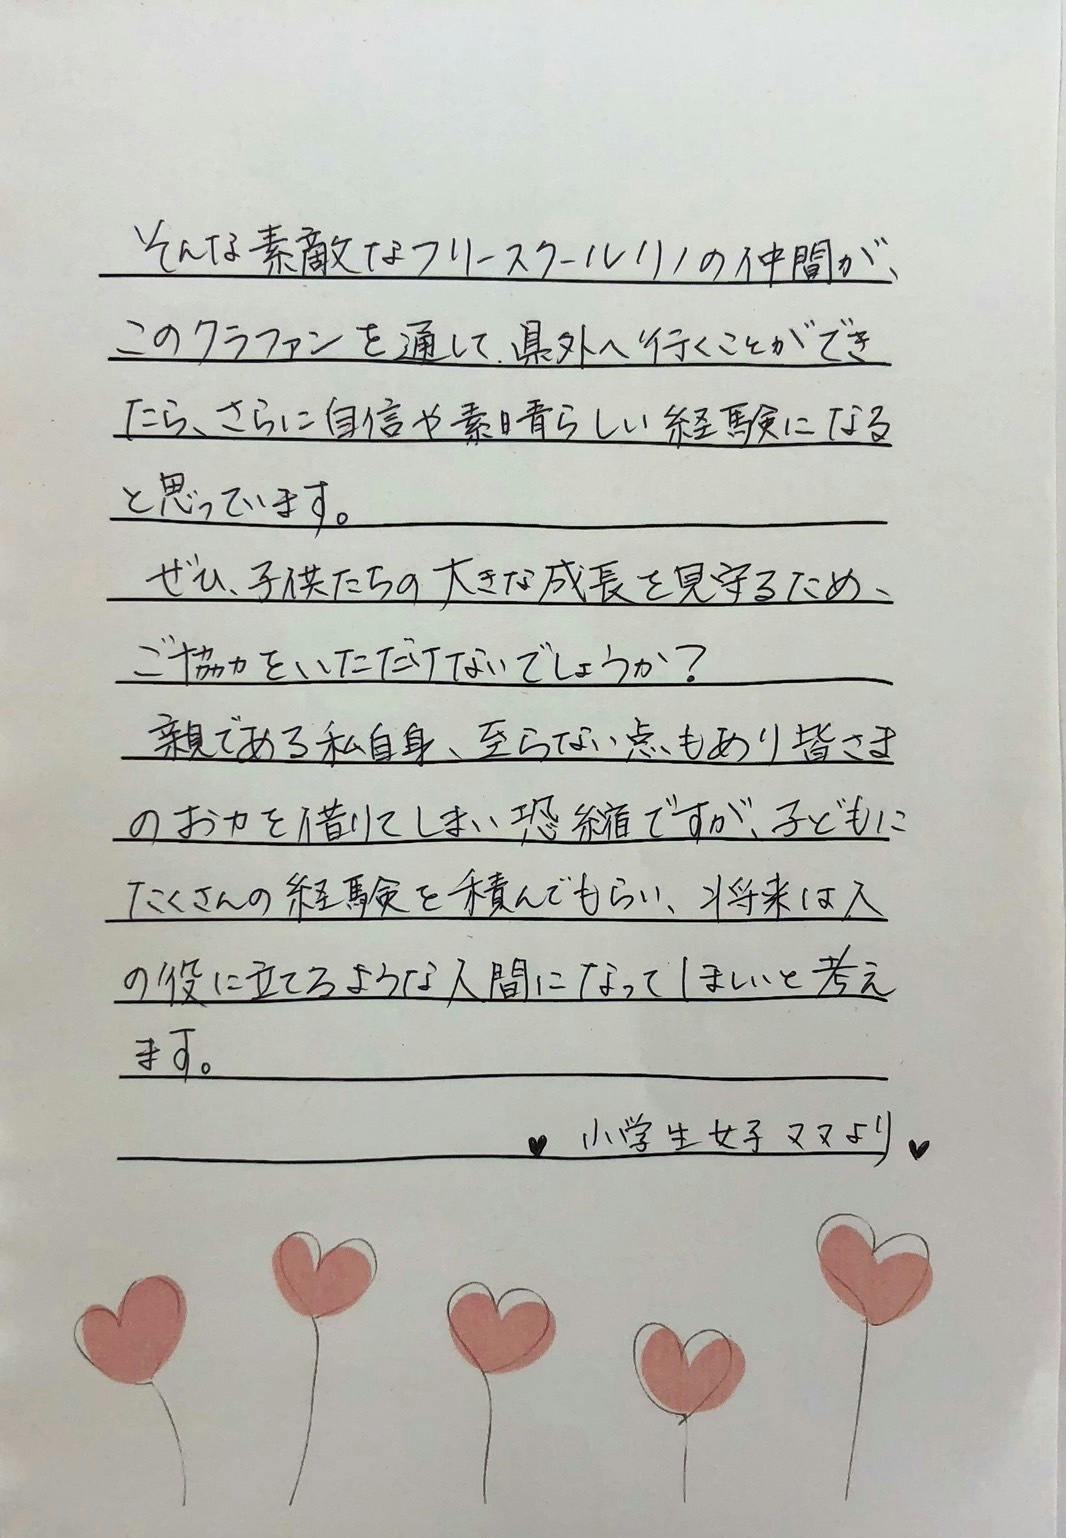 そんな素敵なフリースクールリノの仲間が、
このクラファンを通して、県外へ行くことができ
たら、さらに自信や素晴らしい経験になる
と思っています。
ぜひ、子供たちの大きな成長を見守るため、
ご協力をいただけないでしょうか？
親である私自身、至らない点もあり皆さま
のお力を借りてしまい恐縮ですが、子どもに
たくさんの経験を積んでもらい、将来は人
の役に立てるような人間になってほしいと考え
ます。
♥ 小学生女子ママより ♥